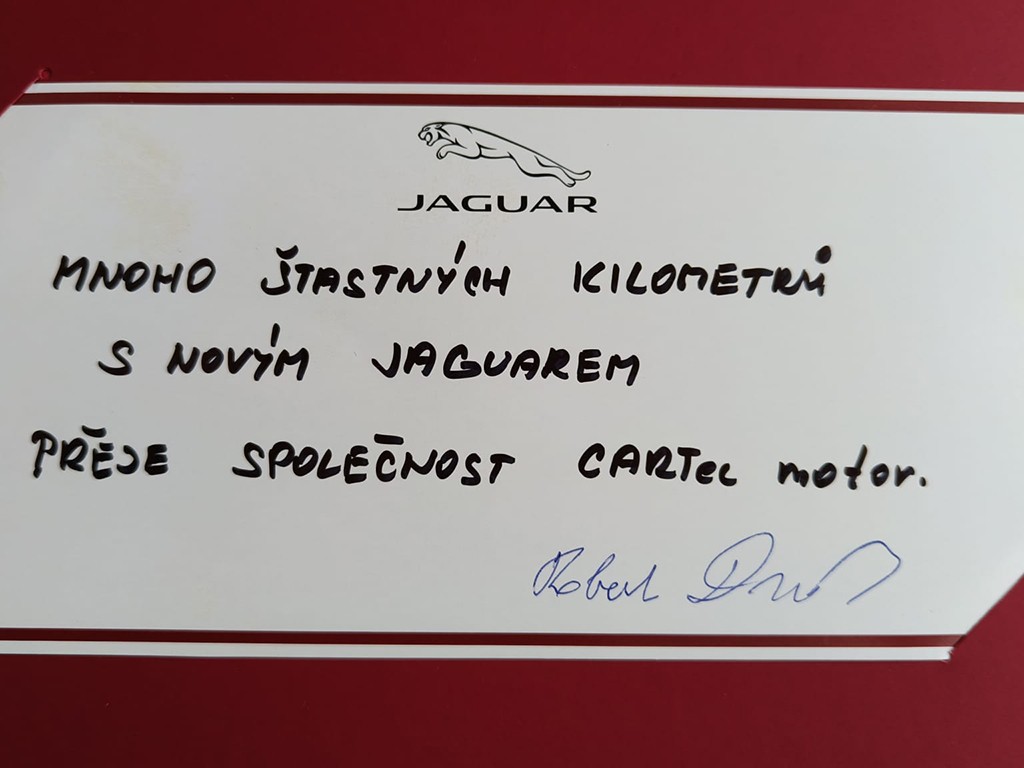 JAGUAR
MNOHO ŠTASTNÝCH KILOMETRŮ
S NOVÝM JAGUAREM
PŘEJE SPOLEČNOST CARTec motor.
Robert